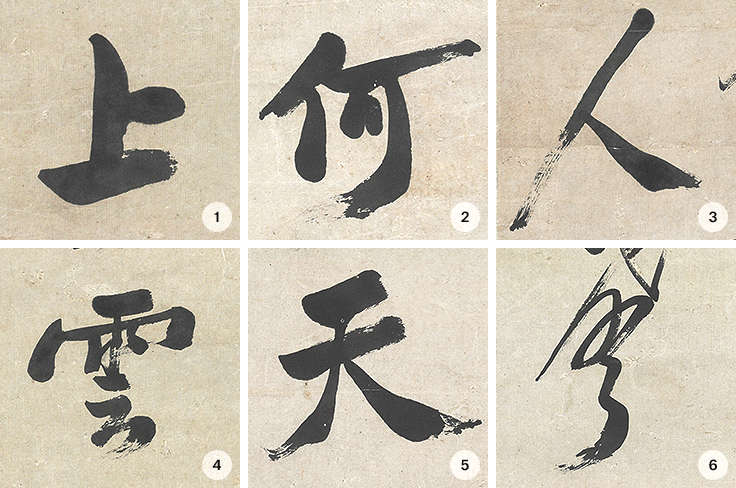 上
1
何
2
人
3
雲
4
天
5
6